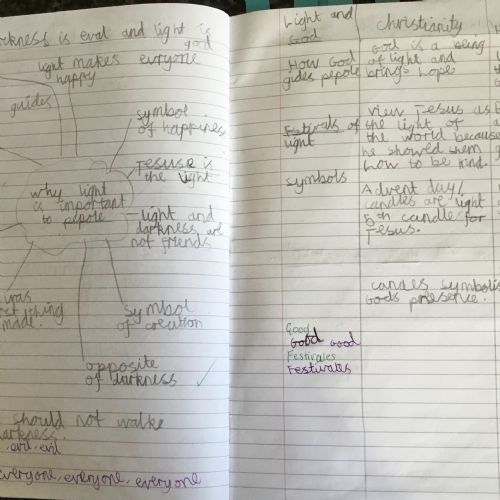 rkness is eval and light is
good
light makes everyone
happy
guides
symbol
of happines
Jesuse is
the light
why light
is important
to pepole
light and
darkness are
not friends
was
thing
made.
symbol
of creation
opposite
of darkness
should not walke
arkness.
evil, evil
everyone, everyone, everyone
Light and
God
Christianity
How God
gides pepole
God is a being
of light and
brings hope
Festivals of
light
View Jesus as
the light of
the world because
he showed them
how to be kind.
symbols
Advent day/
candles are light
5th candle for
Jesus.
candes symbolis
Gods presence.
Good
Good Good
Festivales
Festivales